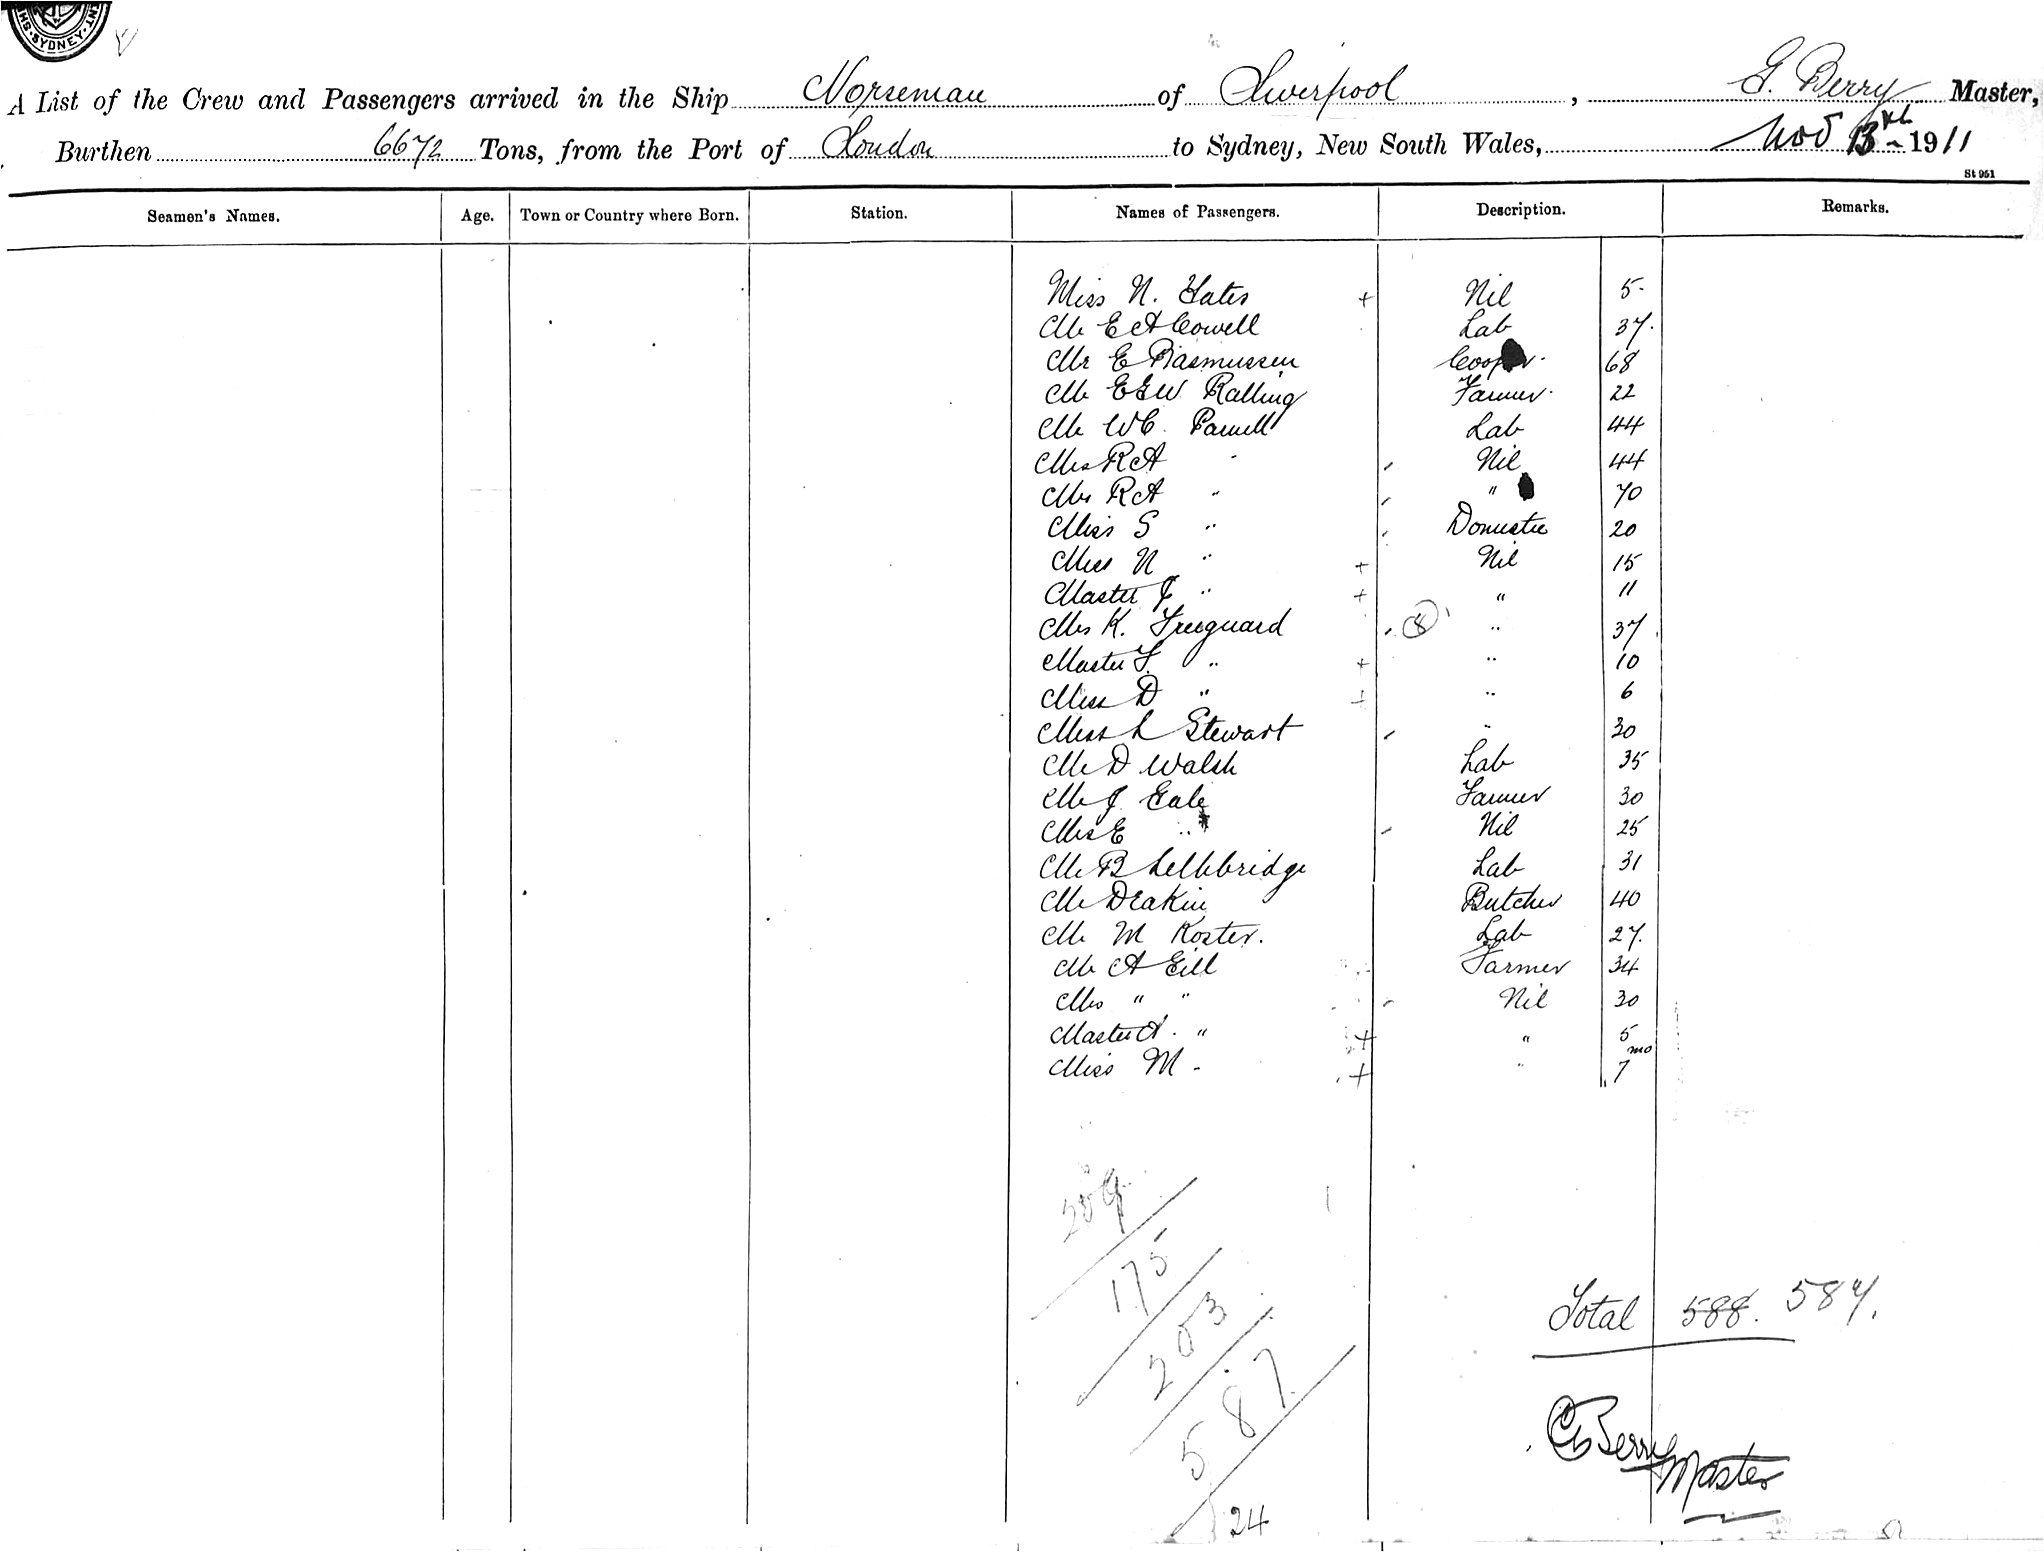 SYDNEY
A List of the Crew and Passengers arrived in the Ship Norseman of Liverpool, G. Berry Master,
Burthen 6672 Tons, from the Port of London to Sydney, New South Wales, Nov 13th 1911
St 951
Seamen's Names. Age. Town or Country where Born. Station. Names of Passengers. Description. Remarks.
Miss N. Yates + Nil 5
Mr E A Cowell Lab 37.
Mr E Rasmussen Cooper 68
Mr E G W Ralling Farmer 22
Mr W C. Parnell Lab 44
Mrs R A " Nil 44
Mrs R A " " 70
Miss S " Domestic 20
Miss N " + Nil 15
Master J " + " 11
Mrs K. Freeguard 8 " 37
Master F. " + " 10
Miss D " + " 6
Miss L Stewart " 30
Mr D Walsh Lab 35
Mr J Eale Farmer 30
Mrs E " Nil 25
Mr B Lethbridge Lab 31
Mr Deakin Butcher 40
Mr M Koster. Lab 27.
Mr A Gill Farmer 34
Mrs " " Nil 30
Master A. " + " 5
Miss M - + " 7 mo
209
175
203
587
24
Total 588. 587.
G Berry
Master